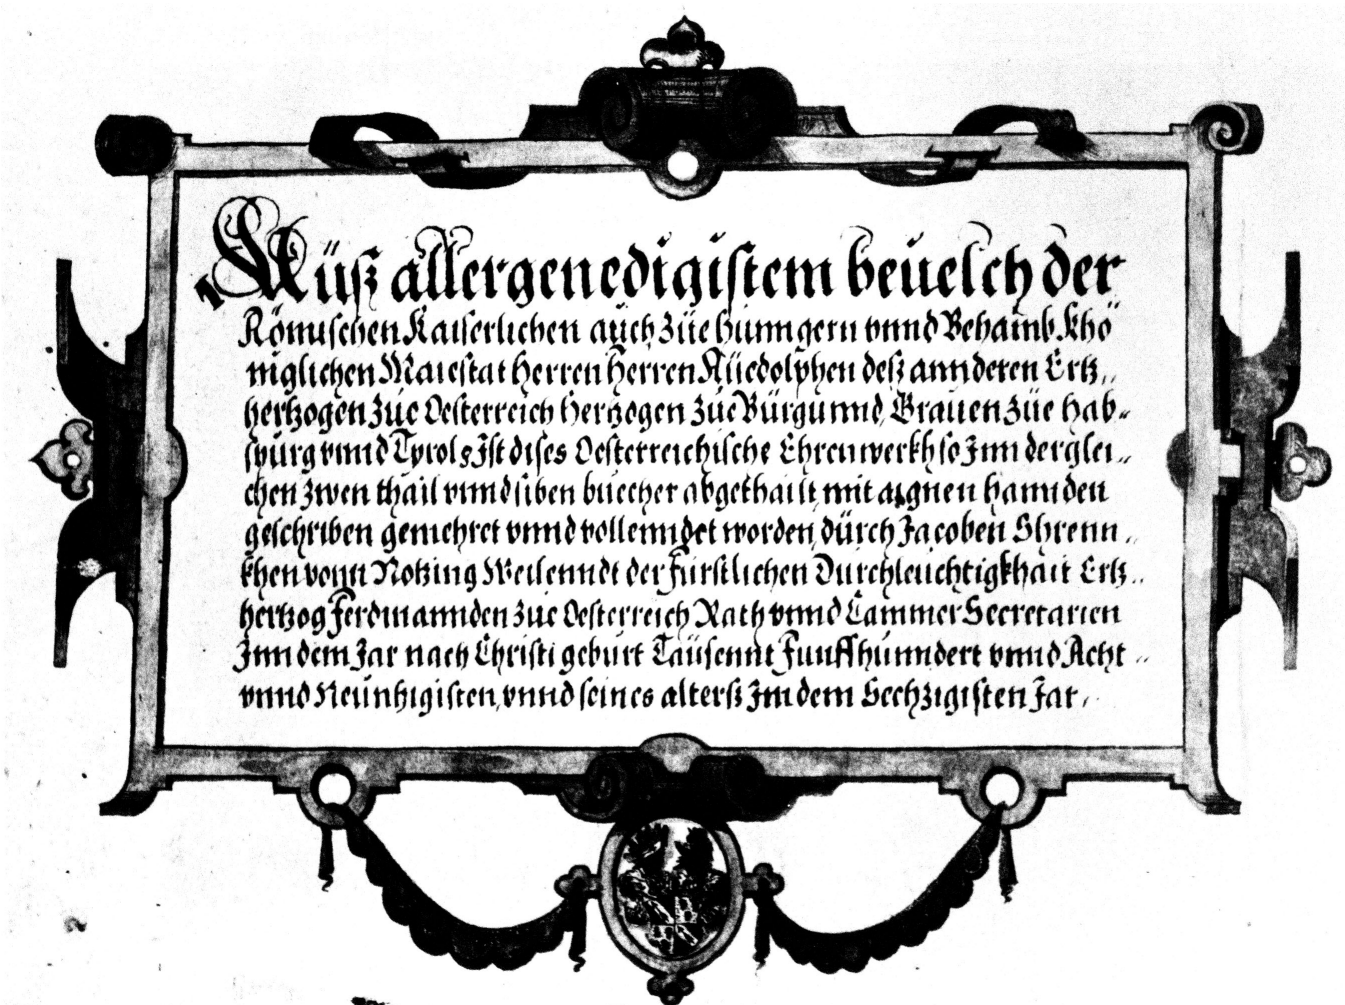 Aüß allergenedigistem beuelch der
Römischen Kaiserlichen aüch Züe hünngern vnnd Behaimb. Khö
niglichen Maiestat herren herren Rüedolphen deß annderen Ertz,,
hertzogen züe Oesterreich hertzogen züe Bürgünnd, Grauen züe hab-
spürg vnnd Tyrol Ist dises Oesterreichische Ehrenwerkh so Inn derglei,,
chen zwen thail vnnd siben büecher abgethailt, mit aignen hannden
geschriben gemehret vnnd vollenndet worden, dürch Jacoben Shrenn,,
khen vonn Notzing Weilenndt der fürstlichen Dürchleüchtigkhait Ertz,,
hertzog Ferdinannden züe Oesterreich Rath vnnd Cammer Secretarien
Inn dem Jar nach Christi gebürt Taüsennt Fünffhünndert vnnd Acht,,
vnnd Neünhigisten, vnnd seines alterß Im dem Sechzigisten Jar,